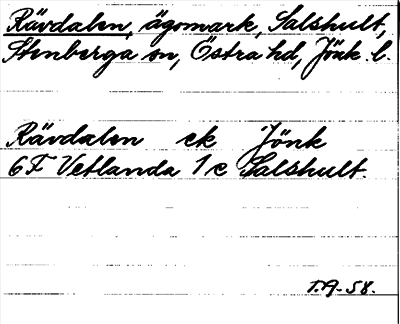 Rävdalen, ägomark, Salshult,
Stenberga sn, Östra hd, Jönk. l.
Rävdalen ek Jönk
6F Vetlanda 1 c Salshult.
T.A-58.